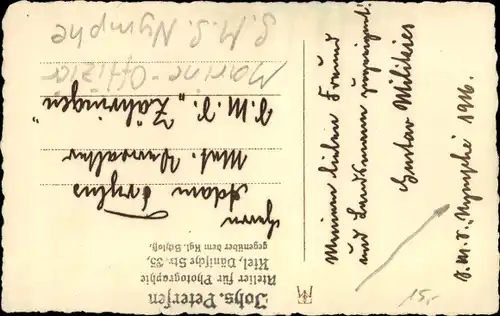 Meinem lieben Freund
und Landsmann zugeeignet!
Gustav Militzies
S.M.S. „Nymphe“ 1916.
15,-
Herrn
Adam
Mat.
S.M.S. „Zähringen“
Marine-Offizier
S.M.S. Nymphe
Johs. Petersen
Atelier für Photographie
Kiel, Dänische Str. 35,
gegenüber dem Kgl. Schloß.